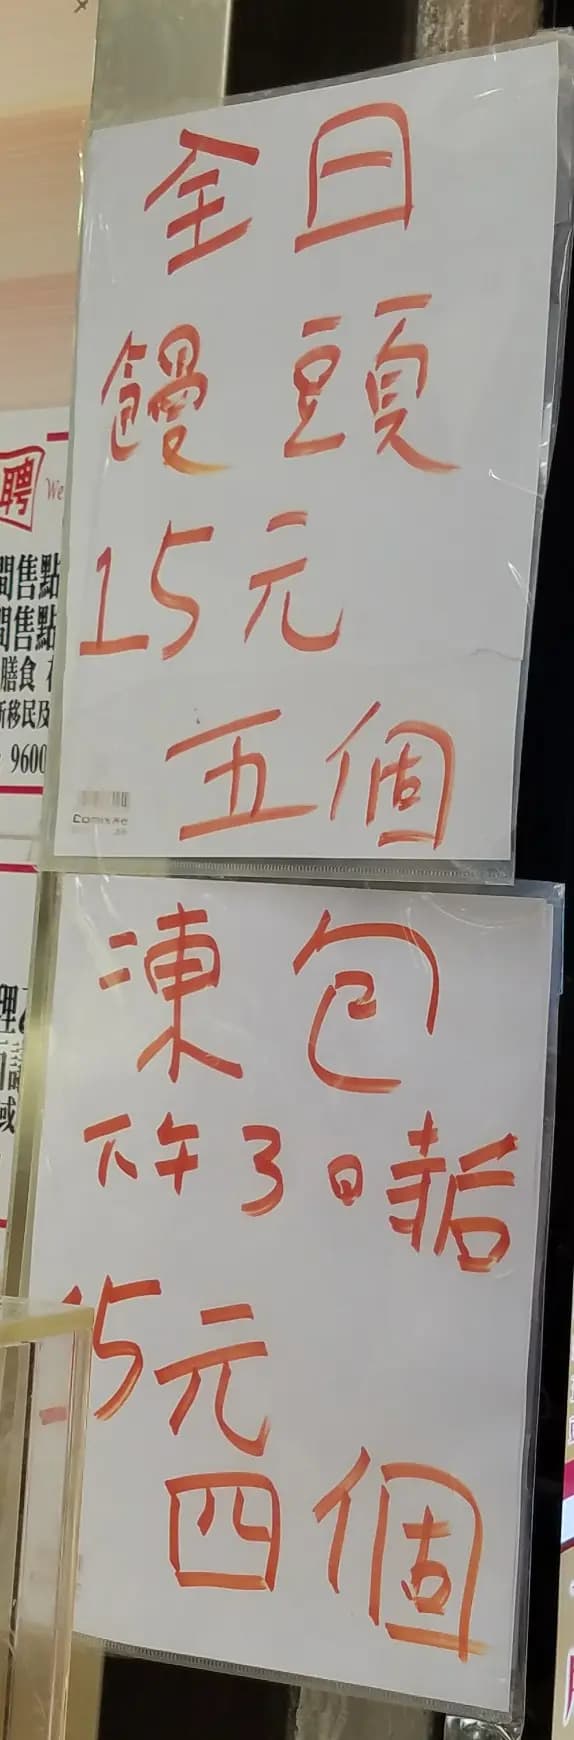 全日
饅頭
15元
五個
凍包
下午3時后
15元
四個
聘
We
間售點
間售點
膳食
新移民及
9600
Comix